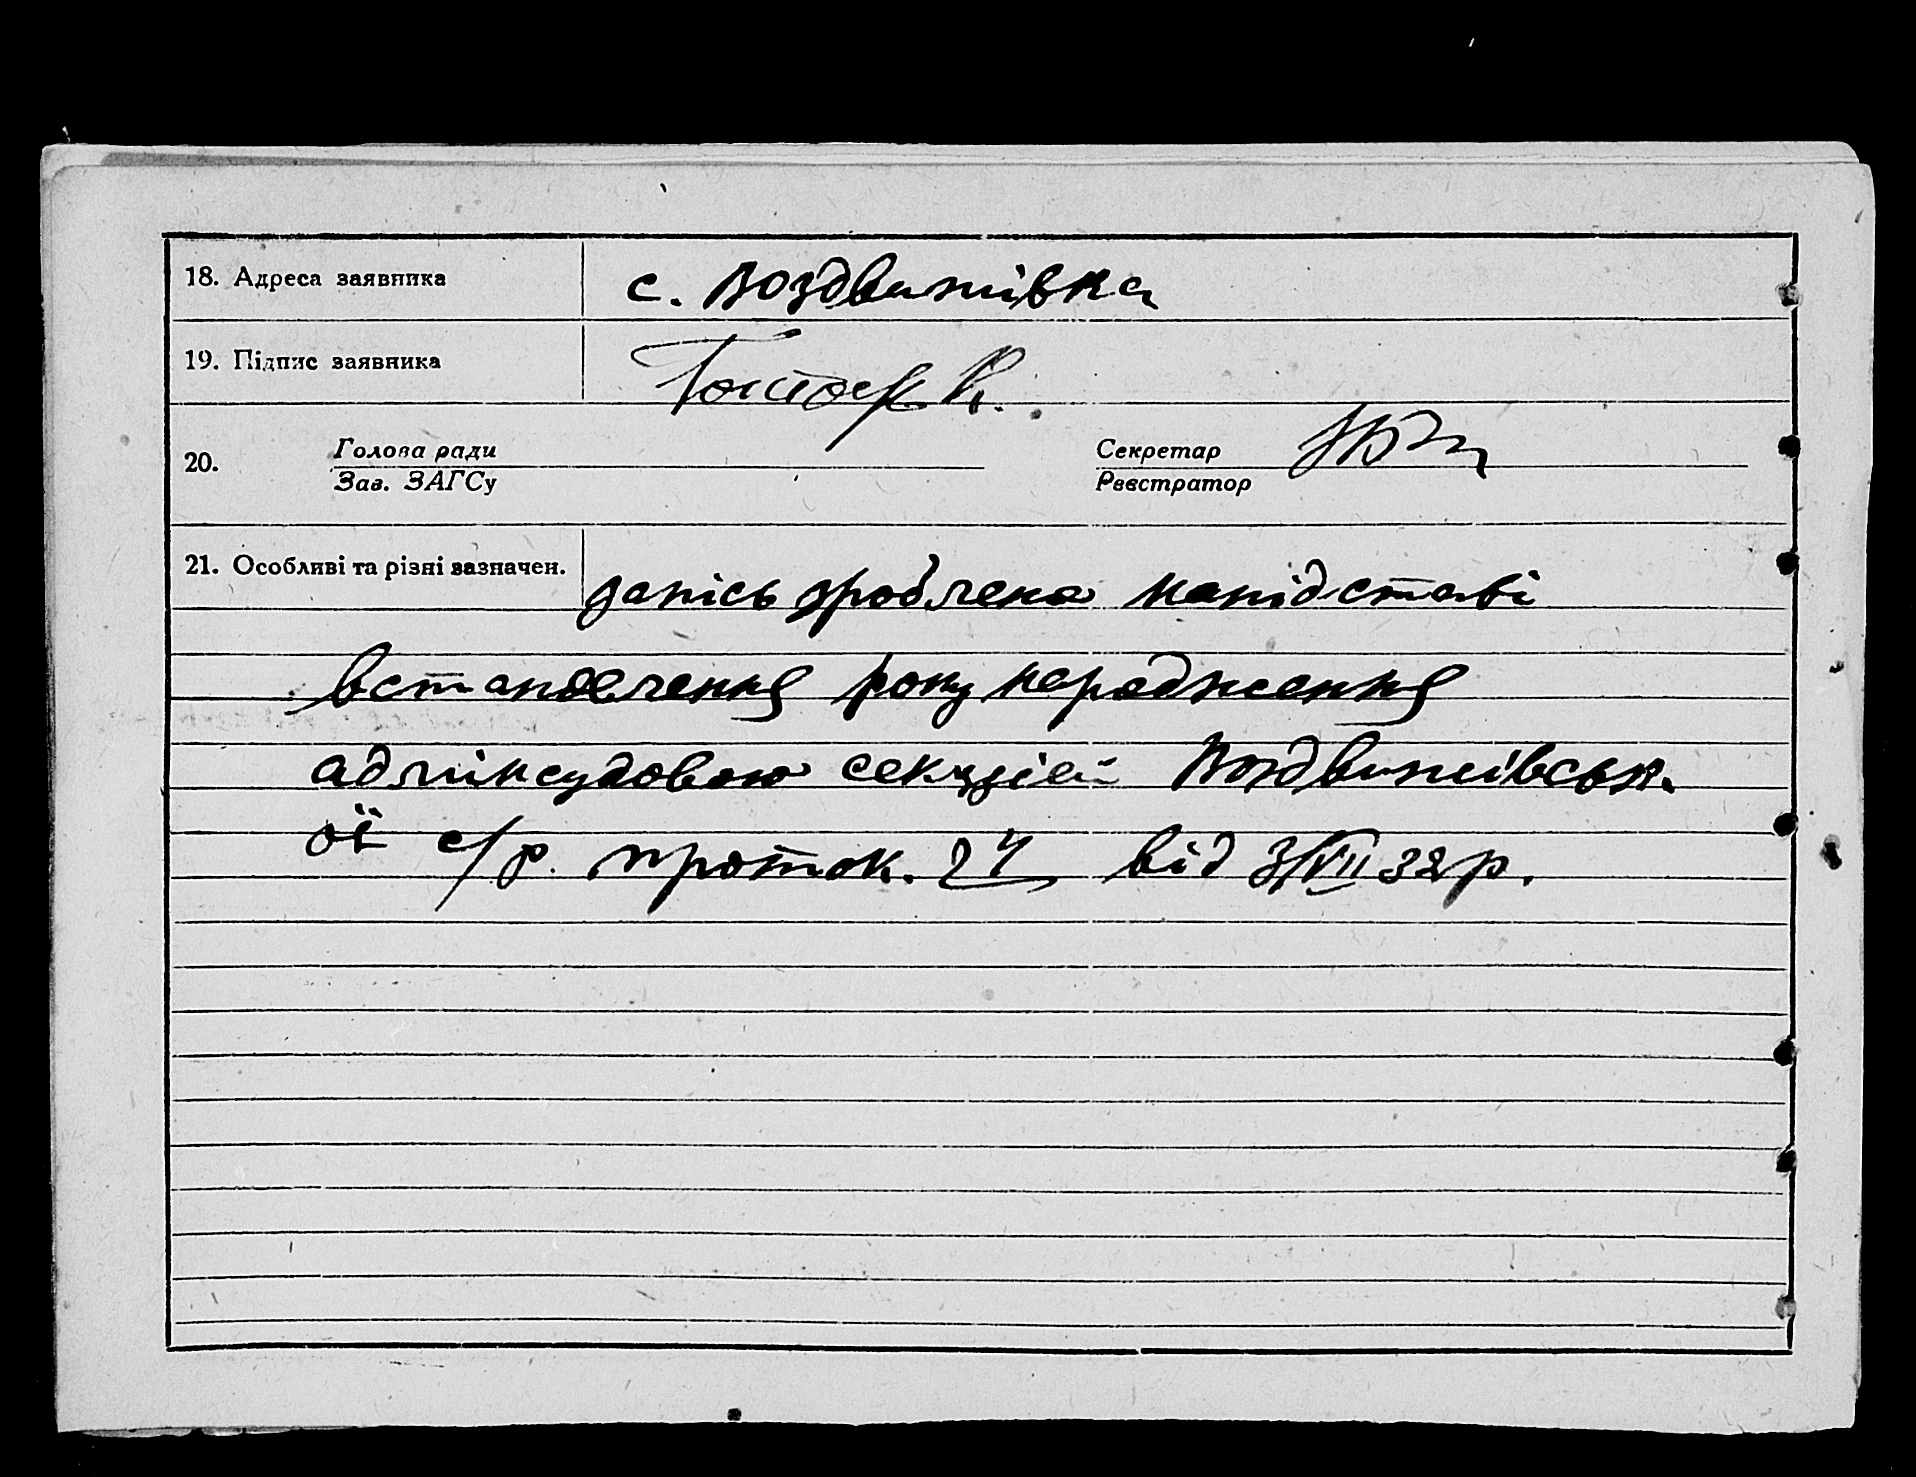 18. Адреса заявника с. Воздвижівка
19. Підпис заявника
20. Голова ради Секретар
Зав. ЗАГСу Реєстратор
21. Особливі та різні зазначен. запісь зроблена напідставі
встановлення року народження
адмінсудовою секцієй Воздвижівськ.
ої с/р. проток. 24 від 3/VII 32 р.